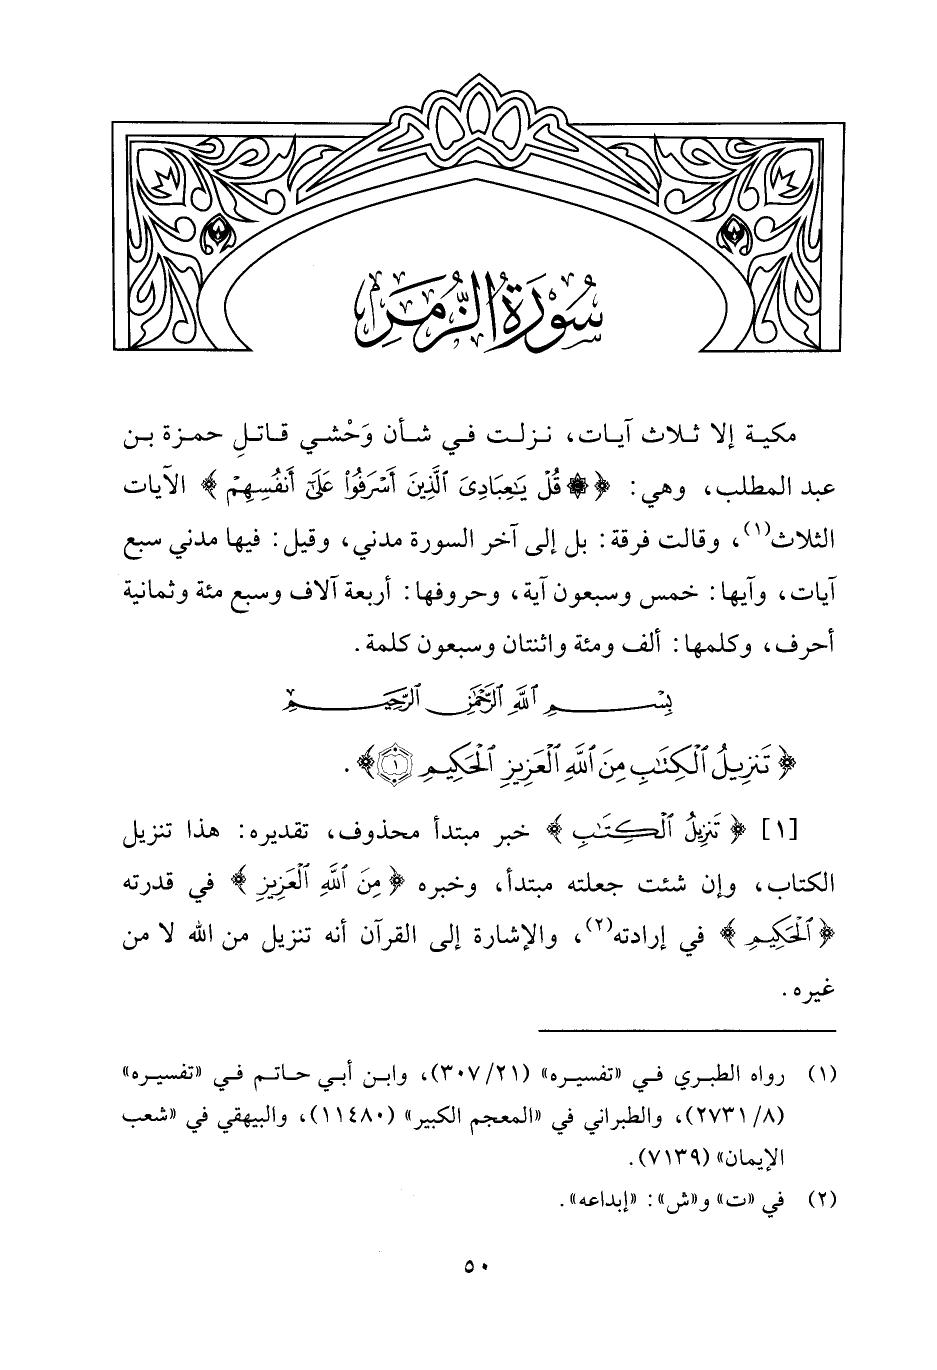 سُوْرَةُ الزُّمَرِ
مكية إلا ثلاث آيات، نزلت في شأن وَحْشي قاتلِ حمزة بن
عبد المطلب، وهي: ﴿۞ قُلْ يَٰعِبَادِيَ ٱلَّذِينَ أَسْرَفُوا۟ عَلَىٰٓ أَنفُسِهِمْ﴾ الآيات
الثلاث(١)، وقالت فرقة: بل إلى آخر السورة مدني، وقيل: فيها مدني سبع
آيات، وآيها: خمس وسبعون آية، وحروفها: أربعة آلاف وسبع مئة وثمانية
أحرف، وكلمها: ألف ومئة واثنتان وسبعون كلمة.
بِسْمِ ٱللَّهِ ٱلرَّحْمَٰنِ ٱلرَّحِيمِ
﴿تَنزِيلُ ٱلْكِتَٰبِ مِنَ ٱللَّهِ ٱلْعَزِيزِ ٱلْحَكِيمِ ١﴾.
[١] ﴿تَنزِيلُ ٱلْكِتَٰبِ﴾ خبر مبتدأ محذوف، تقديره: هذا تنزيل
الكتاب، وإن شئت جعلته مبتدأ، وخبره ﴿مِنَ ٱللَّهِ ٱلْعَزِيزِ﴾ في قدرته
﴿ٱلْحَكِيمِ﴾ في إرادته(٢)، والإشارة إلى القرآن أنه تنزيل من الله لا من
غيره.
(١) رواه الطبري في «تفسيره» (٢١/ ٣٠٧)، وابن أبي حاتم في «تفسيره»
(٨/ ٢٧٣١)، والطبراني في «المعجم الكبير» (١١٤٨٠)، والبيهقي في «شعب
الإيمان» (٧١٣٩).
(٢) في «ت» و«ش»: «إبداعه».
٥٠